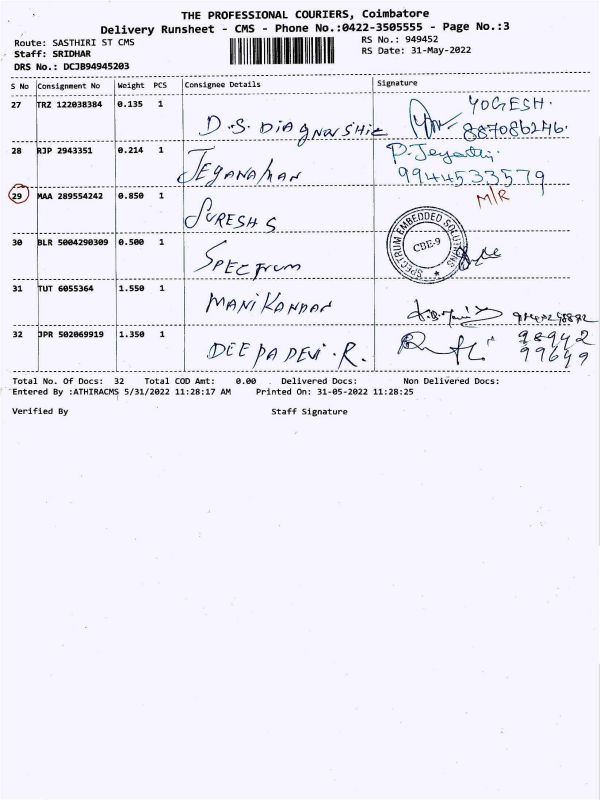 THE PROFESSIONAL COURIERS, Coimbatore
Delivery Runsheet - CMS - Phone No.:0422-3505555 - Page No.:3
Route: SASTHIRI ST CMS
RS No.: 949452
Staff: SRIDHAR
RS Date: 31-May-2022
DRS No.: DCJB94945203
S No Consignment No Weight PCS Consignee Details Signature
27 TRZ 122038384 0.135 1 D.S. DIAGNOSTIC YOGESH.
28 RJP 2943351 0.214 1 JEGANATHAN P. Jeyasthi
9944533579
29 MAA 289554242 0.850 1 SURESH S M/R
SPECTRUM EMBEDDED SOLUTIONS
CBE-9
30 BLR 5004290309 0.500 1 SPECTRUM
31 TUT 6055364 1.550 1 MANIKANDAN
32 JPR 502069919 1.350 1 DEEPA DEVI.R. 98942
99649
Total No. Of Docs: 32 Total COD Amt: 0.00 Delivered Docs: Non Delivered Docs:
Entered By :ATHIRACMS 5/31/2022 11:28:17 AM Printed On: 31-05-2022 11:28:25
Verified By Staff Signature